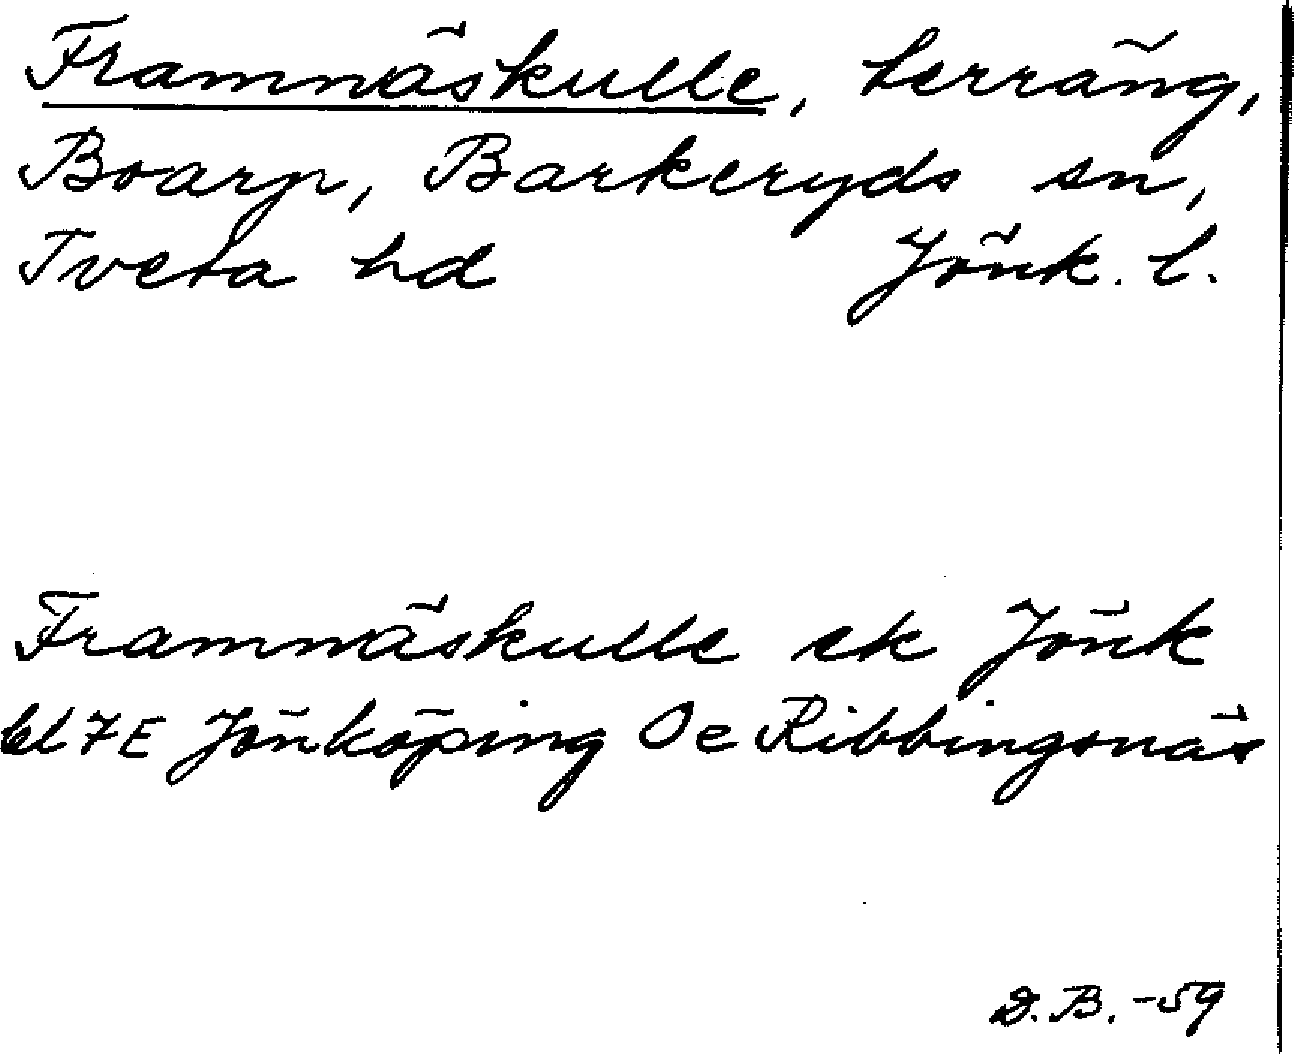 Framnäskulle, terräng,
Boarp, Barkeryds sn,
Tveta hd Jönk. l.
Framnäskulle ek Jönk
bl 7E Jönköping Oe Ribbingsnäs
D.B. -59